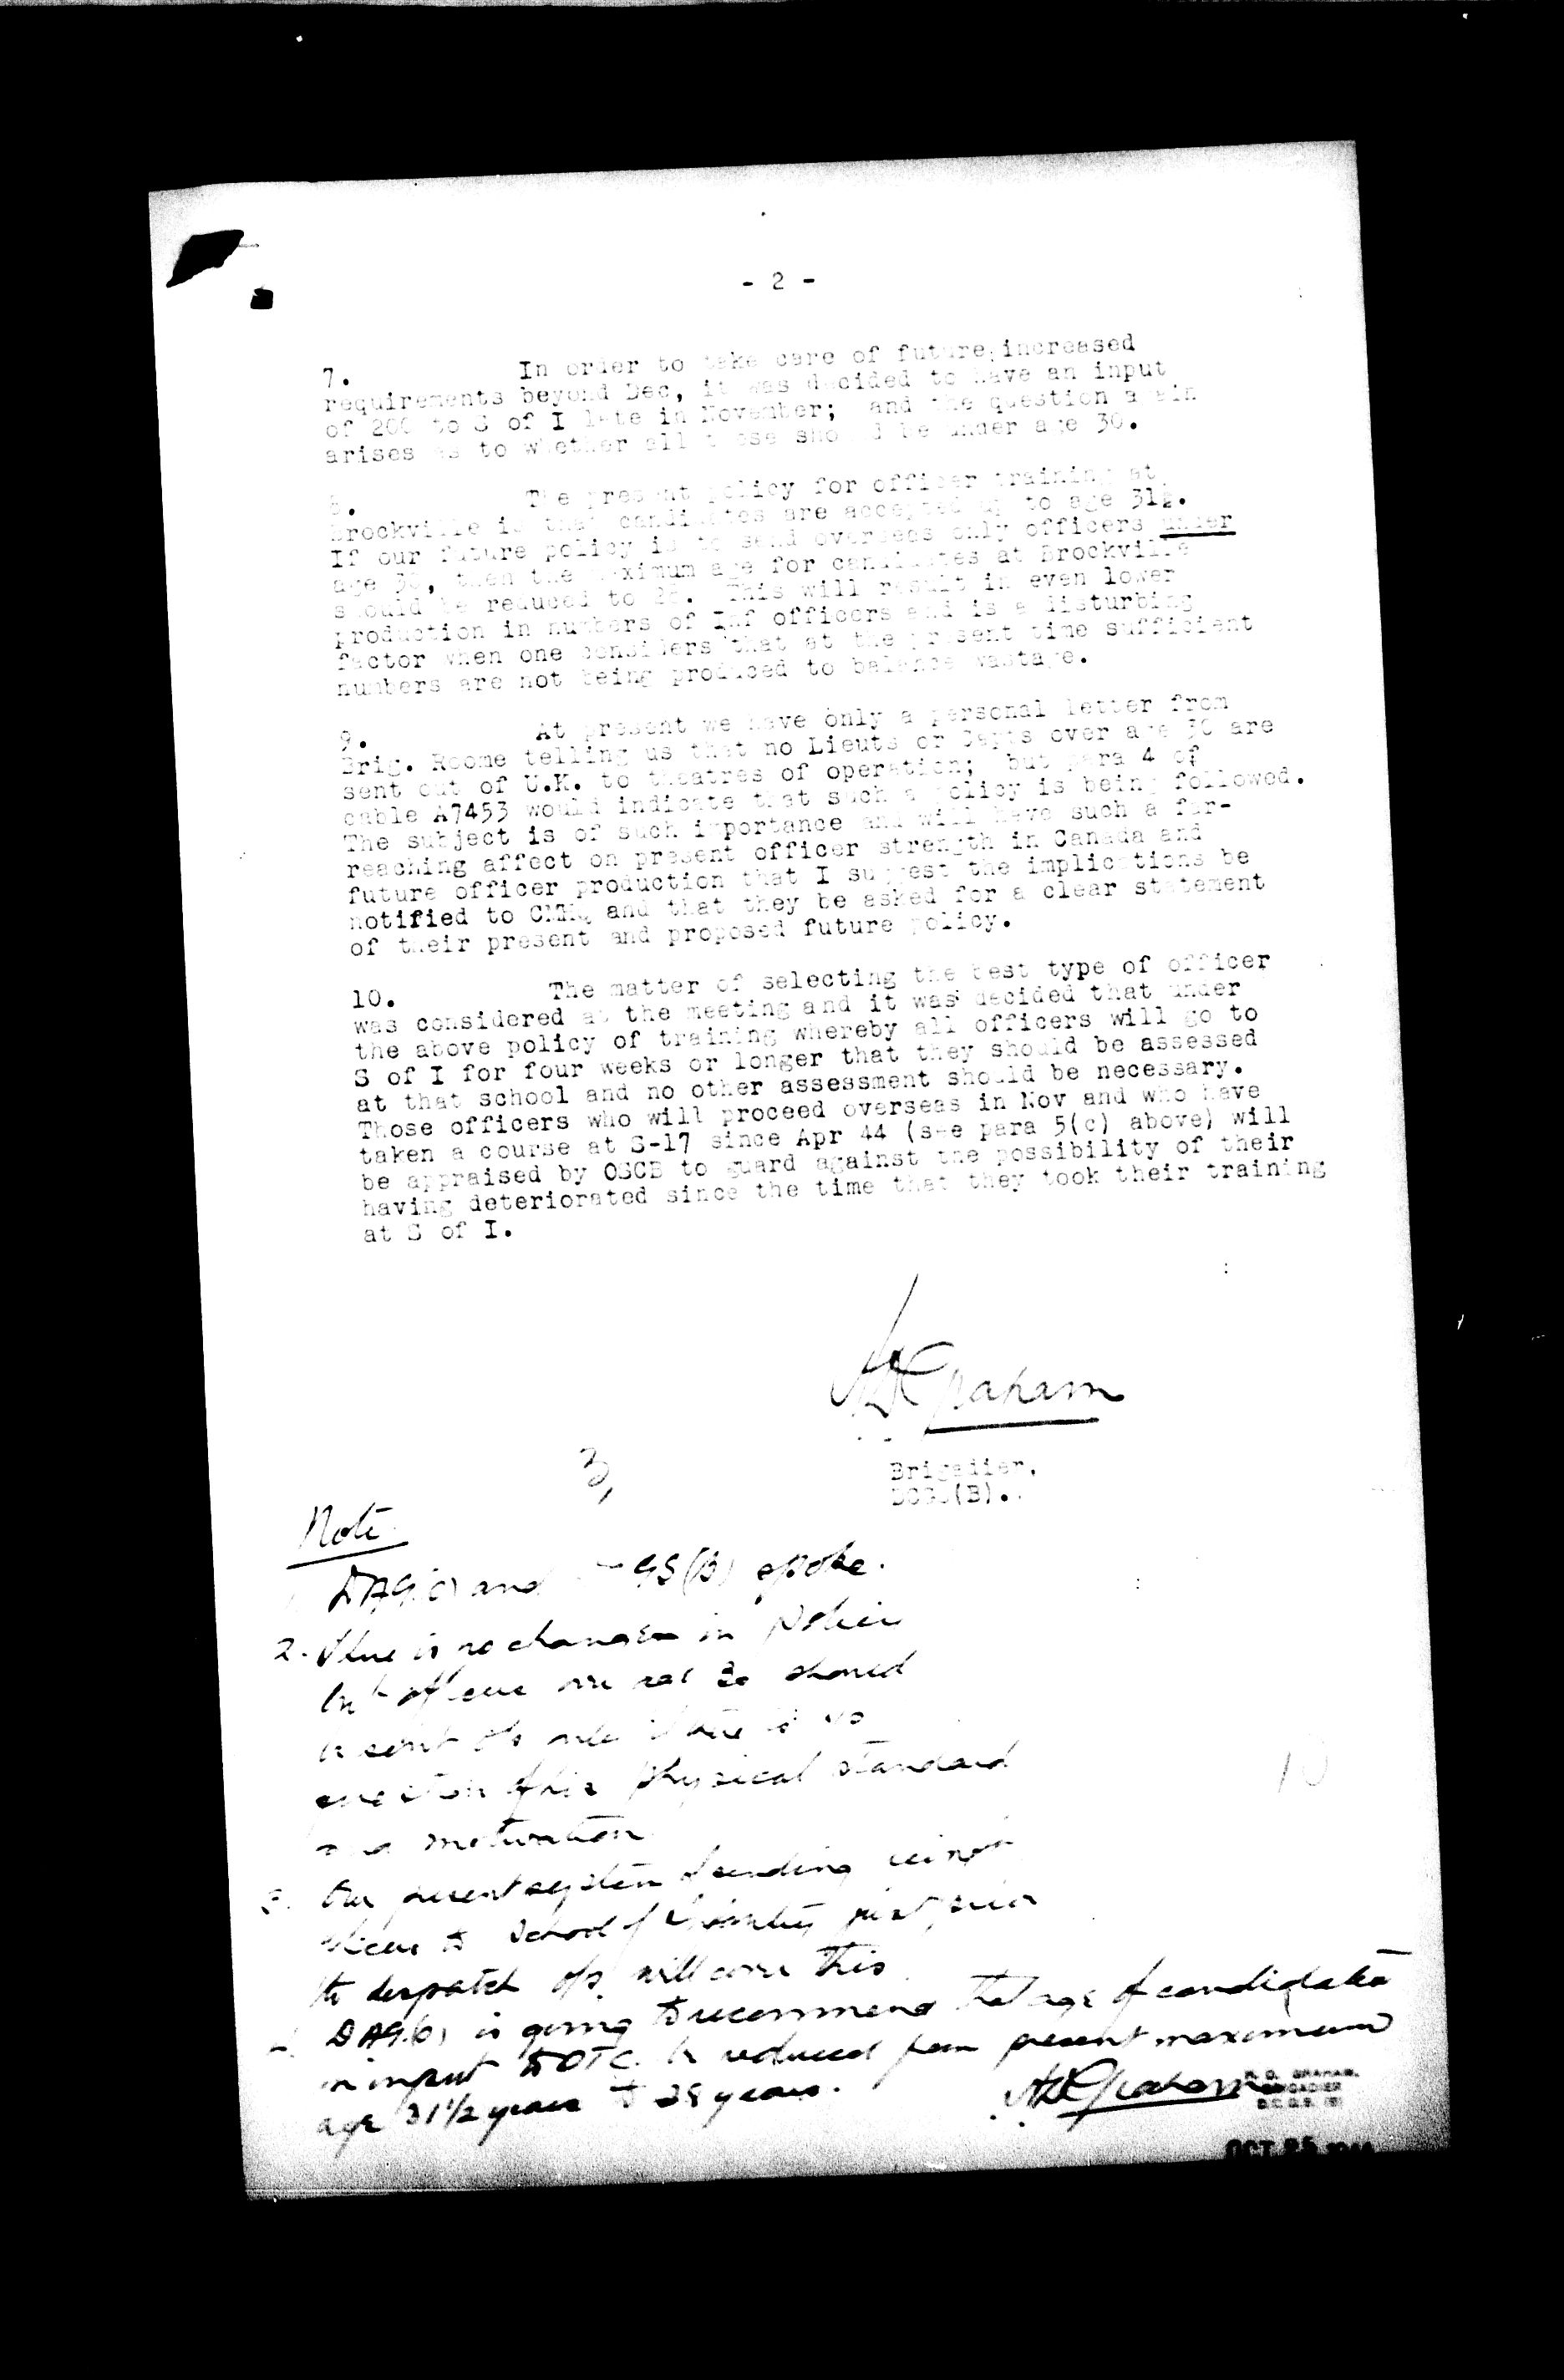 - 2 -
7. In order to take care of future increased
requirements beyond Dec, it was decided to have an input
of 200 to S of I late in November; and the question again
arises as to whether all these should be under age 30.
8. The present policy for officer training at
Brockville is that candidates are accepted up to age 31½.
If our future policy is to send overseas only officers under
age 30, then the maximum age for candidates at Brockville
should be reduced to 28. This will result in even lower
production in numbers of Inf officers and is a disturbing
factor when one considers that at the present time sufficient
numbers are not being produced to balance wastage.
9. At present we have only a personal letter from
Brig. Roome telling us that no Lieuts or Capts over age 30 are
sent out of U.K. to theatres of operation; but para 4 of
cable A7453 would indicate that such a policy is being followed.
The subject is of such importance and will have such a far-
reaching affect on present officer strength in Canada and
future officer production that I suggest the implications be
notified to CMHQ and that they be asked for a clear statement
of their present and proposed future policy.
10. The matter of selecting the best type of officer
was considered at the meeting and it was decided that under
the above policy of training whereby all officers will go to
S of I for four weeks or longer that they should be assessed
at that school and no other assessment should be necessary.
Those officers who will proceed overseas in Nov and who have
taken a course at S-17 since Apr 44 (see para 5(c) above) will
be appraised by OSCB to guard against the possibility of their
having deteriorated since the time that they took their training
at S of I.
Graham
Brigadier,
DCGS(B).
3
Note
DAG(O) and GS(B) spoke.
2. There is no change in Policy
officer 30 should
be sent o/s there is no
question of his physical standard
and motivation
3. Our present system of sending reinf
officers to School of Infantry just prior
to despatch o/s will cover this
DAG(O) is going to recommend that age of candidates
in input to OTC be reduced from present maximum
age 31 1/2 years to 28 years.
Graham
GRAHAM,
BRIGADIER
D.C.G.S. (B)
OCT 25 1944
10